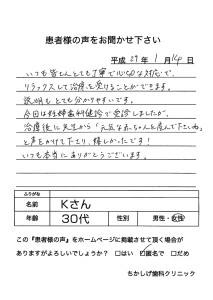 患者様の声をお聞かせ下さい
平成 29 年 1 月 14 日
いつも皆さんとても丁寧で心のある対応で、
リラックスして治療を受けることができます。
説明もとても分かりやすいです。
今日は妊婦歯科健診で受診しましたが、
治療後に先生から「元気な赤ちゃんを産んで下さいね」
と声をかけて下さり、嬉しかったです！
いつも本当にありがとうございます。
ふりがな
名前 Kさん
年齢 30代 性別 男性・女性
この『患者様の声』をホームページに掲載させて頂く場合が
ありますがよろしいでしょうか？ □はい ☑匿名で □だめ
ちかしげ歯科クリニック